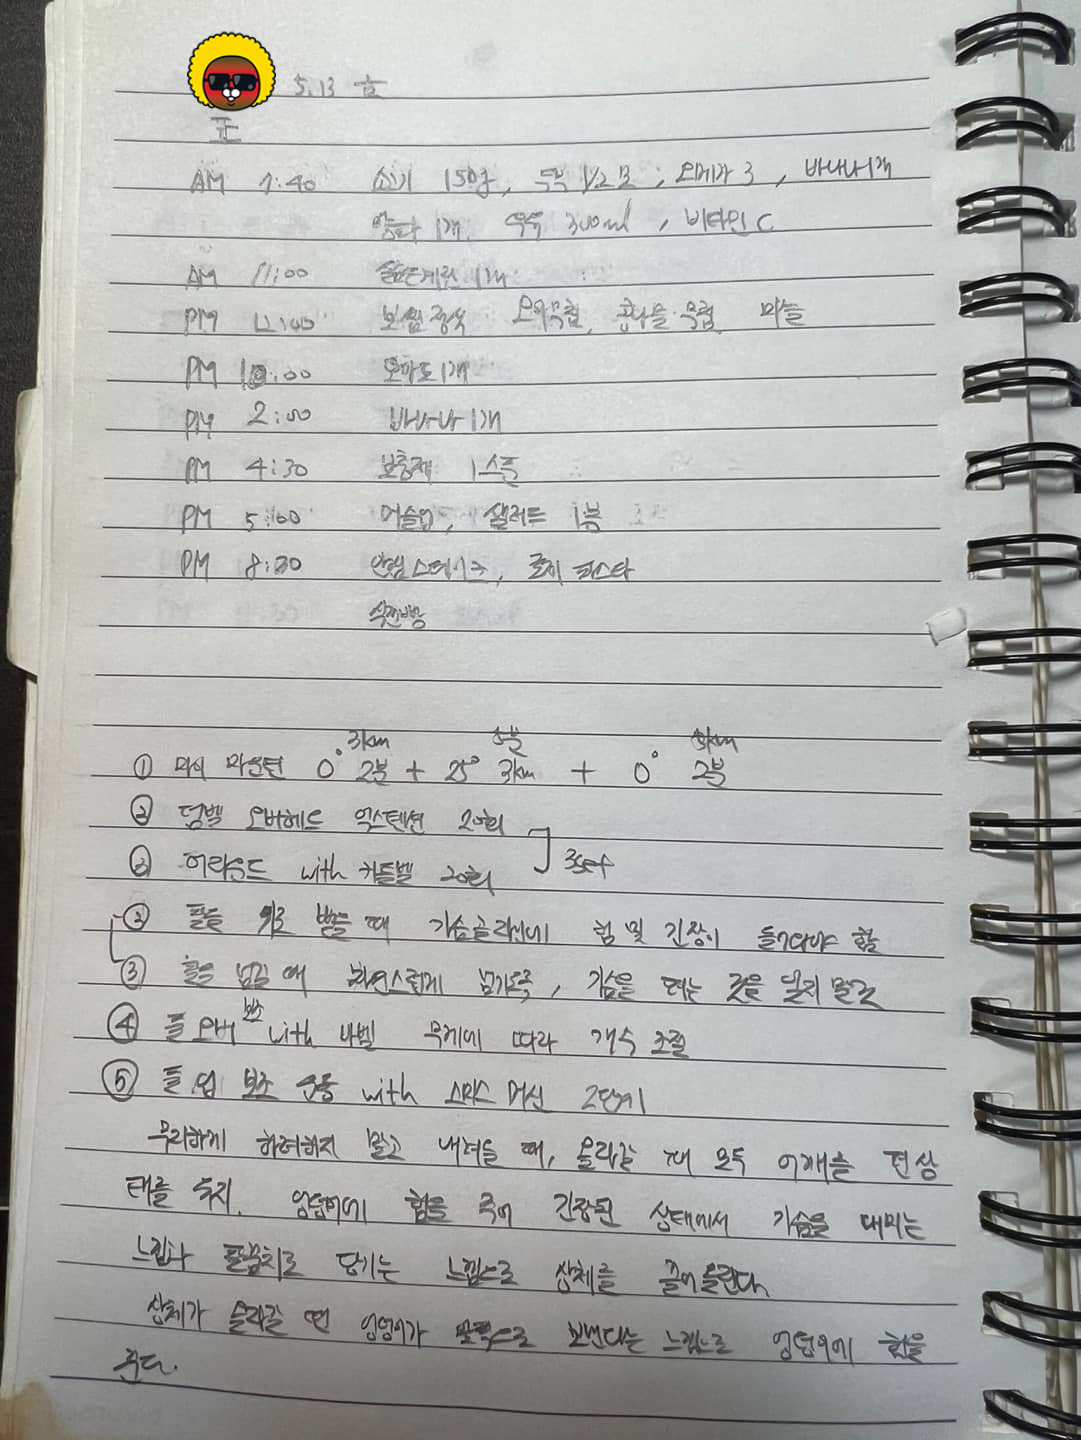 5.13 금
AM 7:40 소고기 150g, 두부 1/2모, 오메가 3, 바나나 1개
양파 1개, 우유 300ml, 비타민 C
AM 11:00 삶은계란 1개
PM 12:40 보쌈정식 오이무침, 콩나물 무침, 마늘
PM 1:00 토마토 1개
PM 2:00 바나나 1개
PM 4:30 보충제 1스푼
PM 5:00 머슬업, 샐러드 1봉
PM 8:30 안심스테이크, 로제 파스타
식전빵
3km 5분 3km
① 마이 마운틴 0° 2분 + 25° 3km + 0° 2분
② 덤벨 오버헤드 익스텐션 20회
③ 어라운드 with 케틀벨 20회 3set
② 팔을 위로 뻗을 때 가슴골 라인에 힘 및 긴장이 들어가야 함
③ 넘길 때 자연스럽게 넘기도록, 가슴을 펴는 것을 잊지 말 것
④ 풀오버 보조 with 바벨 무게에 따라 개수 조절
⑤ 풀업 보조 운동 with 스미스 머신 2단계
무리하게 하려하지 말고 내려올 때, 올라갈 때 모두 어깨를 편 상
태를 유지. 엉덩이에 힘을 주어 긴장된 상태에서 가슴을 내미는
느낌과 팔꿈치로 당기는 느낌으로 상체를 끌어올린다.
상체가 올라갈 땐 엉덩이가 보낸다는 느낌으로 엉덩이에 힘을
준다.